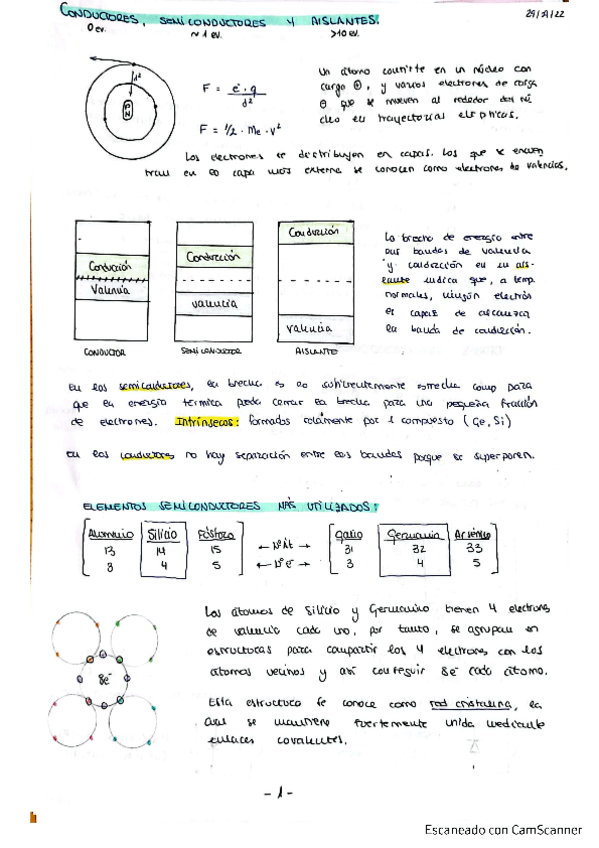 CONDUCTORES, SEMICONDUCTORES Y AISLANTES.
0 ev. ~1 ev. >10 ev.
Un átomo consiste en un núcleo con
F = e·q / d² carga ⊕, y varios electrones de carga
⊖ que se mueven al rededor del nú
F = 1/2 · Me · v² cleo en trayectorias elípticas.
Los electrones se distribuyen en capas. Los que se encuen
tran en la capa más externa se conocen como electrones de valencias.
Conducción
Valencia
CONDUCTOR
Conducción
Valencia
SEMICONDUCTOR
Conducción
Valencia
AISLANTE
La brecha de energía entre
sus bandas de valencia
y conducción en un ais-
lante indica que, a temp.
normales, ningún electrón
es capaz de alcanzar
la banda de conducción.
En los semiconductores, la brecha es lo suficientemente estrecha como para
que la energía térmica pueda cerrar la brecha para una pequeña fracción
de electrones. Intrínsecos: formados solamente por 1 compuesto (Ge, Si)
En los conductores no hay separación entre las bandas porque se superponen.
ELEMENTOS SEMICONDUCTORES MÁS UTILIZADOS:
Aluminio Silicio Fósforo Galio Germanio Arsénico
13 14 15 ← Nº At → 31 32 33
3 4 5 ← Nº e⁻ → 3 4 5
Los átomos de Silicio y Germanio tienen 4 electrones
de valencia cada uno, por tanto, se agrupan en
estructuras para compartir los 4 electrones con los
átomos vecinos y así conseguir 8e⁻ cada átomo.
8e⁻
Esta estructura se conoce como red cristalina, la
cual se mantiene fuertemente unida mediante
enlaces covalentes.
- 1 -
Escaneado con CamScanner